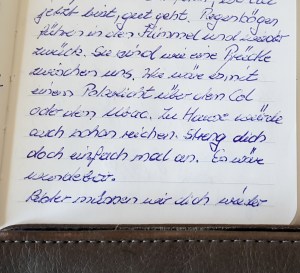 jetzt bist, gut geht. Regenbögen
führen in den Himmel und wieder
zurück. Sie sind wie eine Brücke
zwischen uns. Wie wäre es mit
einem Polarlicht über den Col
oder den Mirac. Zu Hause würde
auch schon reichen. Streng dich
doch einfach mal an. Es wäre
wunderbar.
müssen wir dich wieder